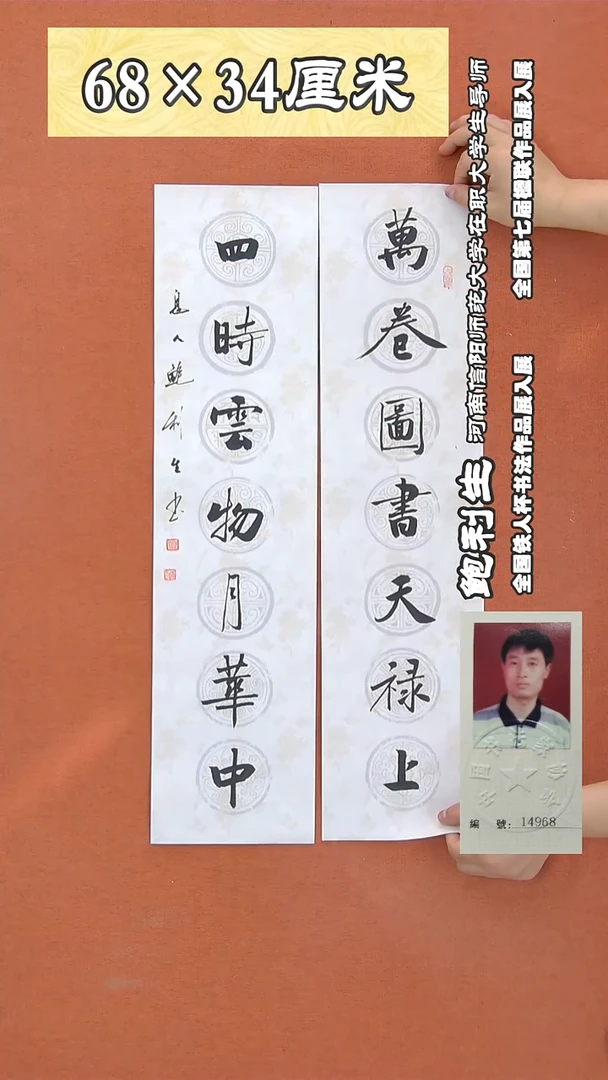 68×34厘米
萬卷圖書天禄上
四時雲物月華中
息人鲍利生书
鲍利生 河南信阳师范大学在职大学生导师
全国铁人杯书法作品展入展 全国第七届楹联作品展入展
編 號: 14968